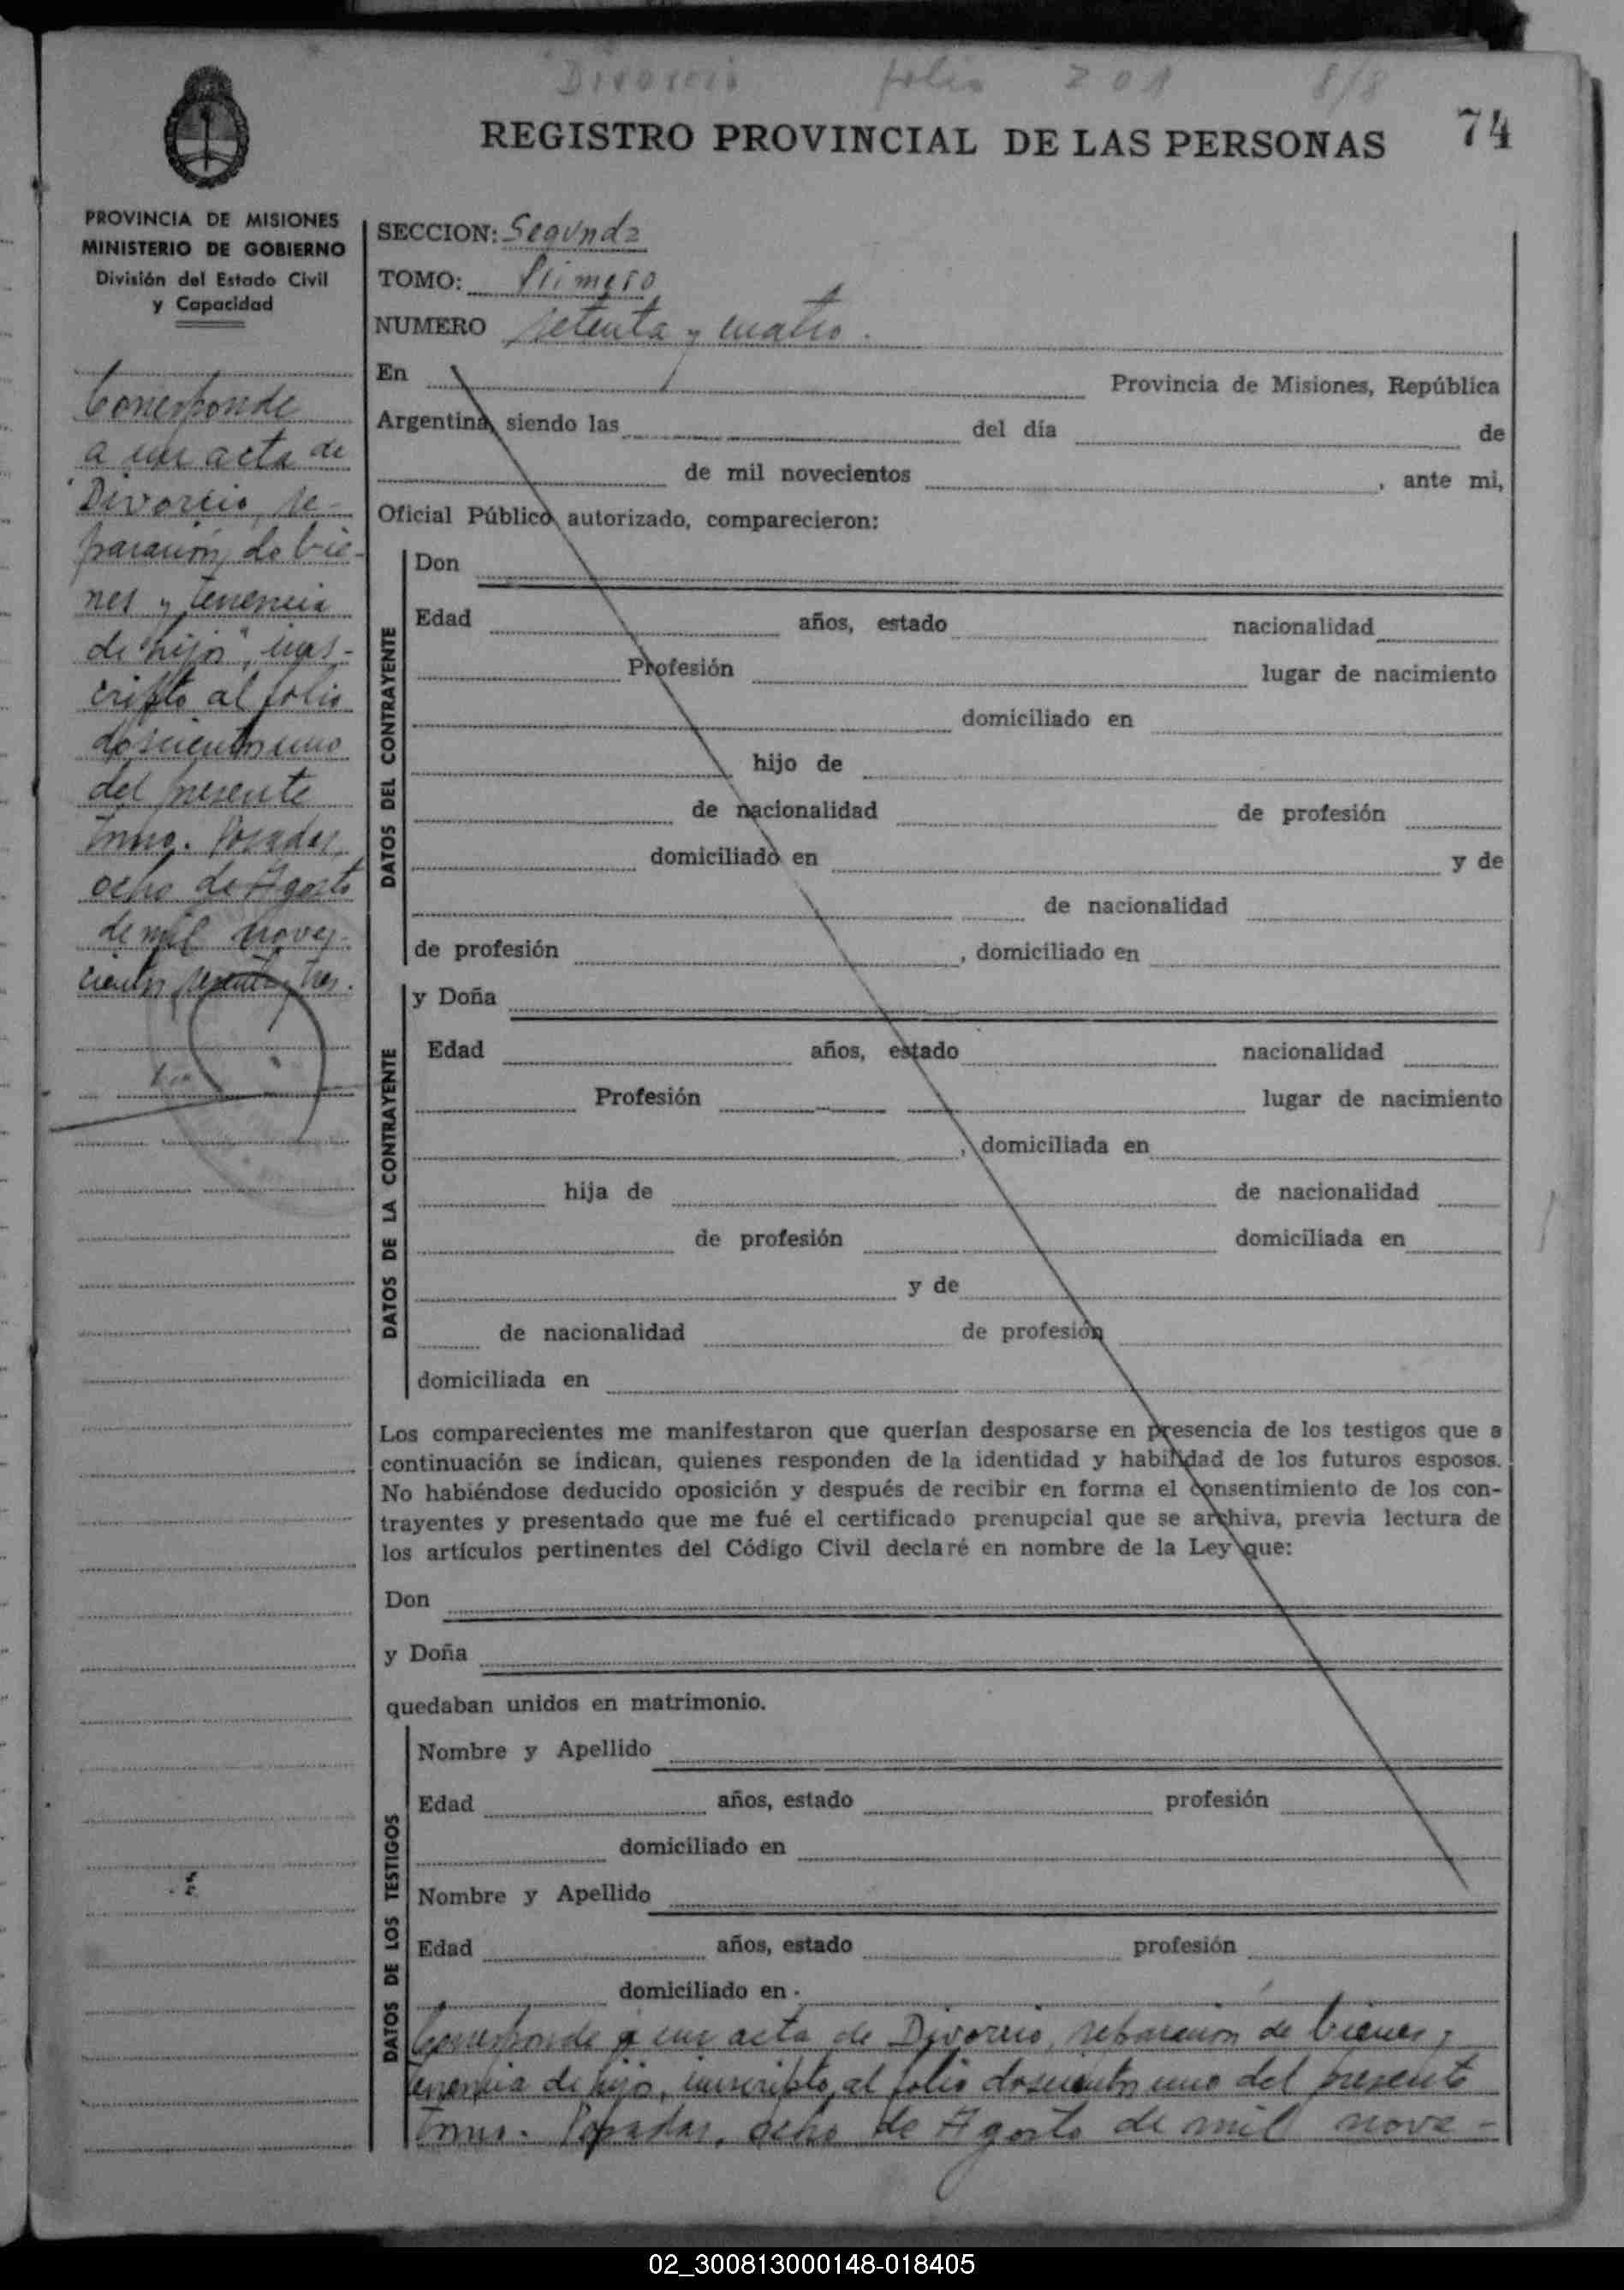 Divorcio folio 201 8/8
74
REGISTRO PROVINCIAL DE LAS PERSONAS
PROVINCIA DE MISIONES
MINISTERIO DE GOBIERNO
División del Estado Civil
y Capacidad
Corresponde
a un acta de
"Divorcio, se-
paración de bie-
nes y tenencia
de hijo", ins-
cripto al folio
doscientos uno
del presente
tomo. Posadas,
ocho de Agosto
de mil nove-
cientos sesenta y tres.
SECCION: Segunda
TOMO: Primero
NUMERO setenta y cuatro.
En Provincia de Misiones, República
Argentina, siendo las del día de
de mil novecientos , ante mi,
Oficial Público autorizado, comparecieron:
DATOS DEL CONTRAYENTE
Don
Edad años, estado nacionalidad
Profesión lugar de nacimiento
domiciliado en
hijo de
de nacionalidad de profesión
domiciliado en y de
de nacionalidad
de profesión , domiciliado en
DATOS DE LA CONTRAYENTE
y Doña
Edad años, estado nacionalidad
Profesión lugar de nacimiento
, domiciliada en
hija de de nacionalidad
de profesión domiciliada en
y de
de nacionalidad de profesión
domiciliada en
Los comparecientes me manifestaron que querían desposarse en presencia de los testigos que a
continuación se indican, quienes responden de la identidad y habilidad de los futuros esposos.
No habiéndose deducido oposición y después de recibir en forma el consentimiento de los con-
trayentes y presentado que me fué el certificado prenupcial que se archiva, previa lectura de
los artículos pertinentes del Código Civil declaré en nombre de la Ley que:
Don
y Doña
quedaban unidos en matrimonio.
DATOS DE LOS TESTIGOS
Nombre y Apellido
Edad años, estado profesión
domiciliado en
Nombre y Apellido
Edad años, estado profesión
domiciliado en
Corresponde a un acta de Divorcio, separación de bienes y
tenencia de hijo, inscripto al folio doscientos uno del presente
tomo. Posadas, ocho de Agosto de mil nove-
02_300813000148-018405